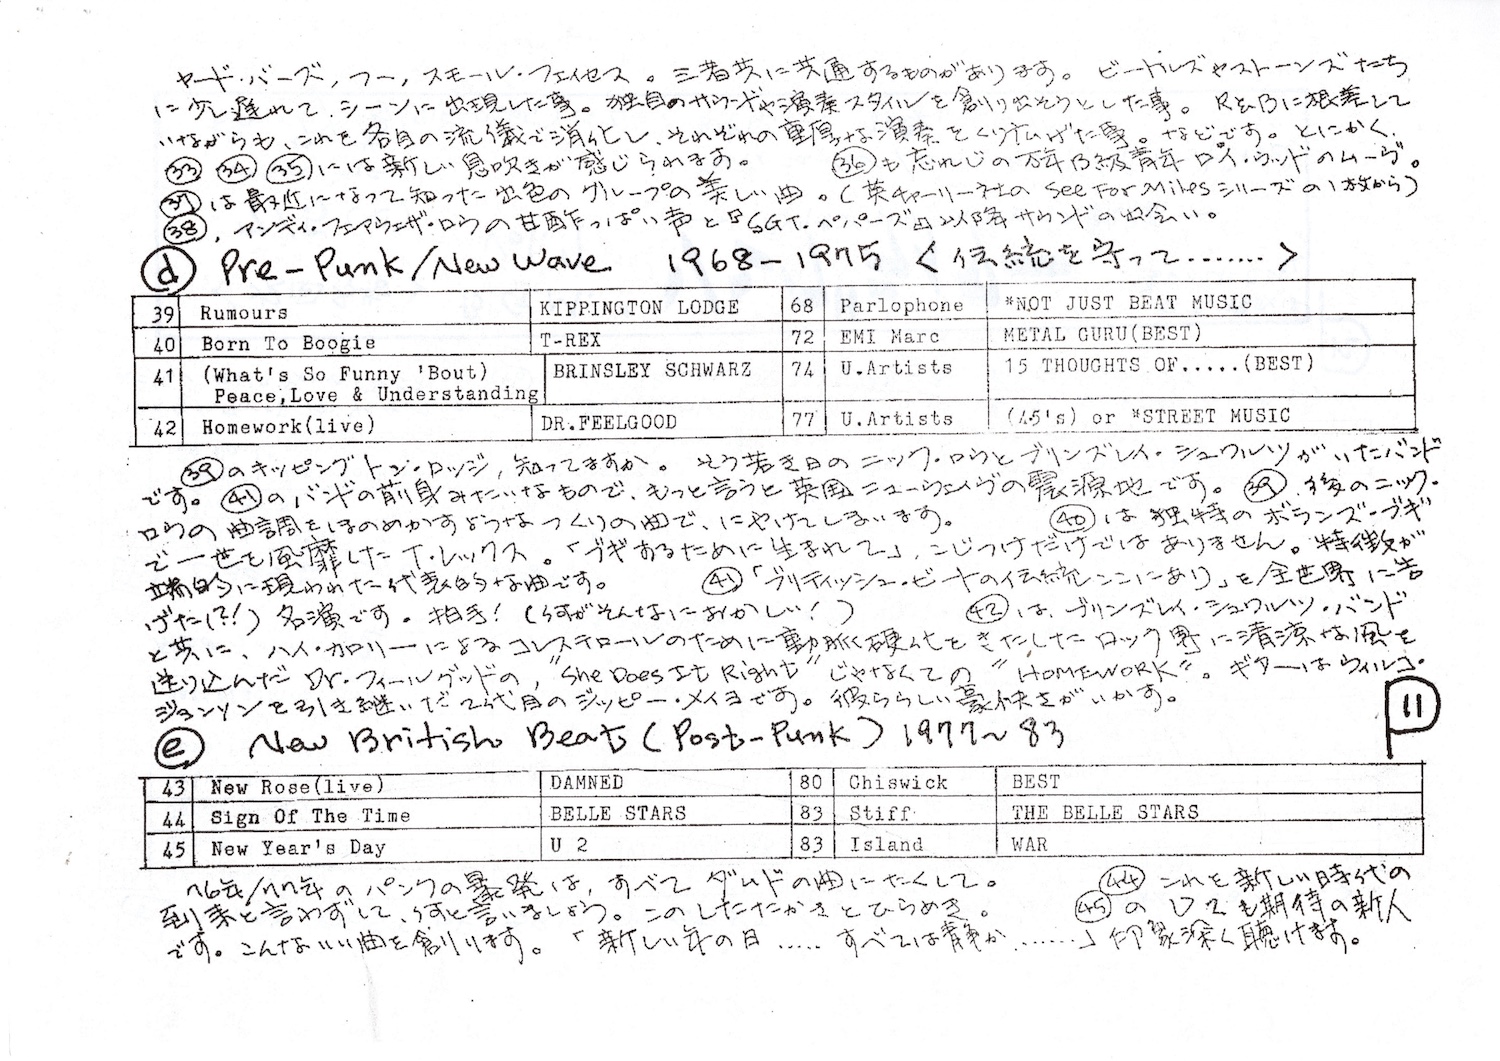 ヤード・バーズ, フー, スモール・フェイセス。三者共に共通するものがあります。 ビートルズやストーンズたち
に少し遅れて、シーンに出現した事。独自のサウンドや演奏スタイルを創り出そうとした事。 R&Bに根差して
いながらも、これを各自の流儀で消化し、それぞれの重厚な演奏をくり広げた事。などです。とにかく、
㉝ ㉞ ㉟ には新しい息吹きが感じられます。 ㊱も忘れじの万年B級青年ロイ・ウッドのムーヴ。
㊲は最近になって知った出色のグループの美しい曲。(英チャーリー社の See For Milesシリーズの1枚から)
㊳, アンディ・フェアウェザ・ロウの甘酢っぱい声と『SGT.ペパーズ』以降サウンドの出会い。
ⓓ Pre-Punk/New Wave 1968-1975 <伝統を守って.......>
39 Rumours KIPPINGTON LODGE 68 Parlophone *NOT JUST BEAT MUSIC
40 Born To Boogie T-REX 72 EMI Marc METAL GURU(BEST)
41 (What's So Funny 'Bout) BRINSLEY SCHWARZ 74 U.Artists 15 THOUGHTS OF.....(BEST)
Peace,Love & Understanding
42 Homework(live) DR.FEELGOOD 77 U.Artists (45's) or *STREET MUSIC
㊴のキッピングトン・ロッジ, 知ってますか。 そう若き日のニック・ロウとブリンズレイ・シュワルツがいたバンド
です。㊶のバンドの前身みたいなもので、もっと言うと英国ニューウェイヴの震源地です。 ㊴、後のニック・
ロウの曲調をほのめかすようなつくりの曲で、にやけてしまいます。 ㊵は独特のボランズ・ブギ
で一世を風靡したT・レックス。「ブギするために生まれて」, こじつけだけではありません。特徴が
端的に現われた代表的な曲です。 ㊶「ブリティッシュ・ビートの伝統ココにあり」を全世界に告
げた(?!) 名演です。拍手! (何がそんなにおかしい!) ㊷は、ブリンズレイ・シュワルツ・バンド
と共に、ハイ・カロリーによるコレステロールのために動脈硬化をきたしたロック界に清涼な風を
送り込んだDr.フィールグッドの, "She Does It Right" じゃなくての "HOMEWORK"。ギターはウィルコ・
ジョンソンを引き継いだ2代目のジッピー・メイヨです。彼ららしい豪快さがいかす。
11
ⓔ New British Beat (Post-Punk) 1977~83
43 New Rose(live) DAMNED 80 Chiswick BEST
44 Sign Of The Time BELLE STARS 83 Stiff THE BELLE STARS
45 New Year's Day U 2 83 Island WAR
76年/77年のパンクの暴発は, すべてダムドの曲にたくして。 ㊹これを新しい時代の
到来と言わずして、何と言いましょう。このしたたかさとひらめき。 ㊺のU2も期待の新人
です。こんないい曲を創ります。「新しい年の日..... すべては静か.......」印象深く聴けます。